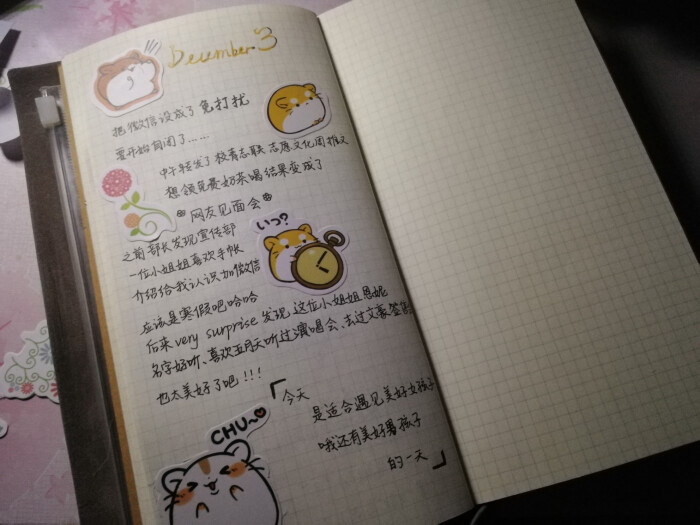 December 3
把微信设成了免打扰
要开始自闭了……
中午轻发了校青志联志愿文化周推文
想领免费奶茶喝结果变成了
网友见面会
いつ?
之前部长发现宣传部
一位小姐姐喜欢手帐
介绍给我认识加微信
应该是寒假吧哈哈
后来 very surprise 发现 这位小姐姐恩妮
名字好听、喜欢五月天听过演唱会、去过文豪签售
也太美好了吧!!!
「今天
是适合遇见美好女孩子
哦还有美好男孩子
的一天」
CHU~